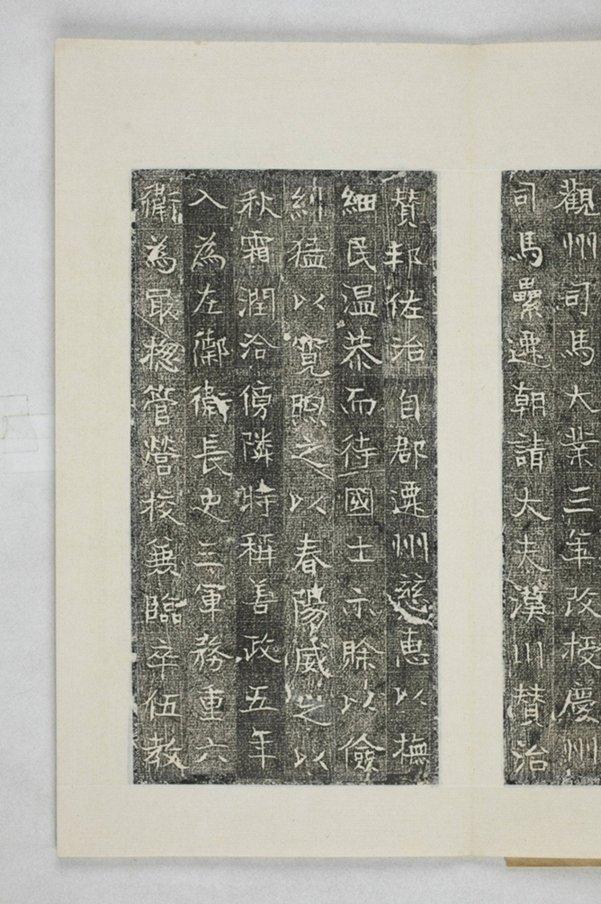 觀州司馬大業三年改授慶州
司馬累遷朝請大夫漢川贊治
贊邦佐治自郡遷州慈惠以撫
細民温恭而待國士示賒以儉
糾猛以寬煦之以春陽威之以
秋霜潤洽傍隣時稱善政五年
入為左禦衛長史三軍務重六
衛為最揔管營校兼臨卒伍教